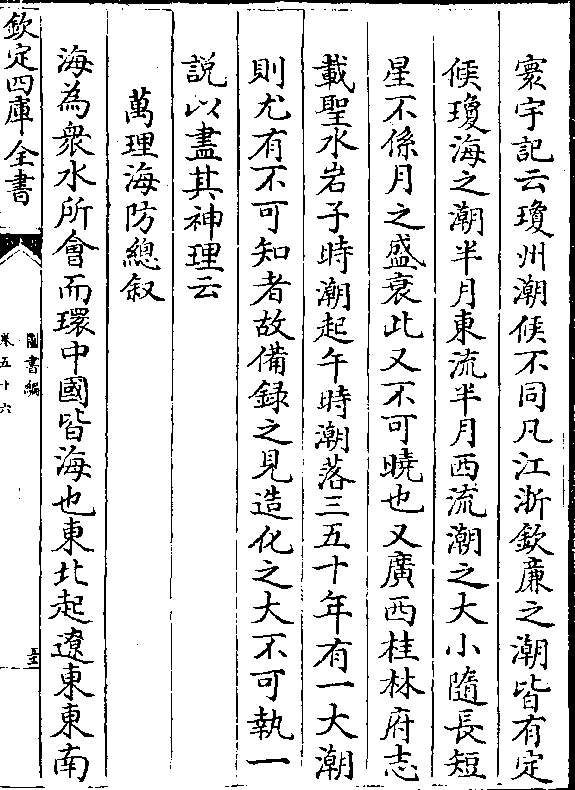 寰宇記云瓊州潮候不同凡江浙欽亷之潮皆有定
候瓊海之潮半月東流半月西流潮之大小隨長短
星不係月之盛衰此又不可曉也又廣西桂林府志
載聖水岩子時潮起午時潮落三五十年有一大潮
則尤有不可知者故備錄之見造化之大不可執一
說以盡其神理云
萬理海防總叙
海為衆水所會而環中國皆海也東北起遼東東南
欽定四庫全書
圖書編
卷五十六